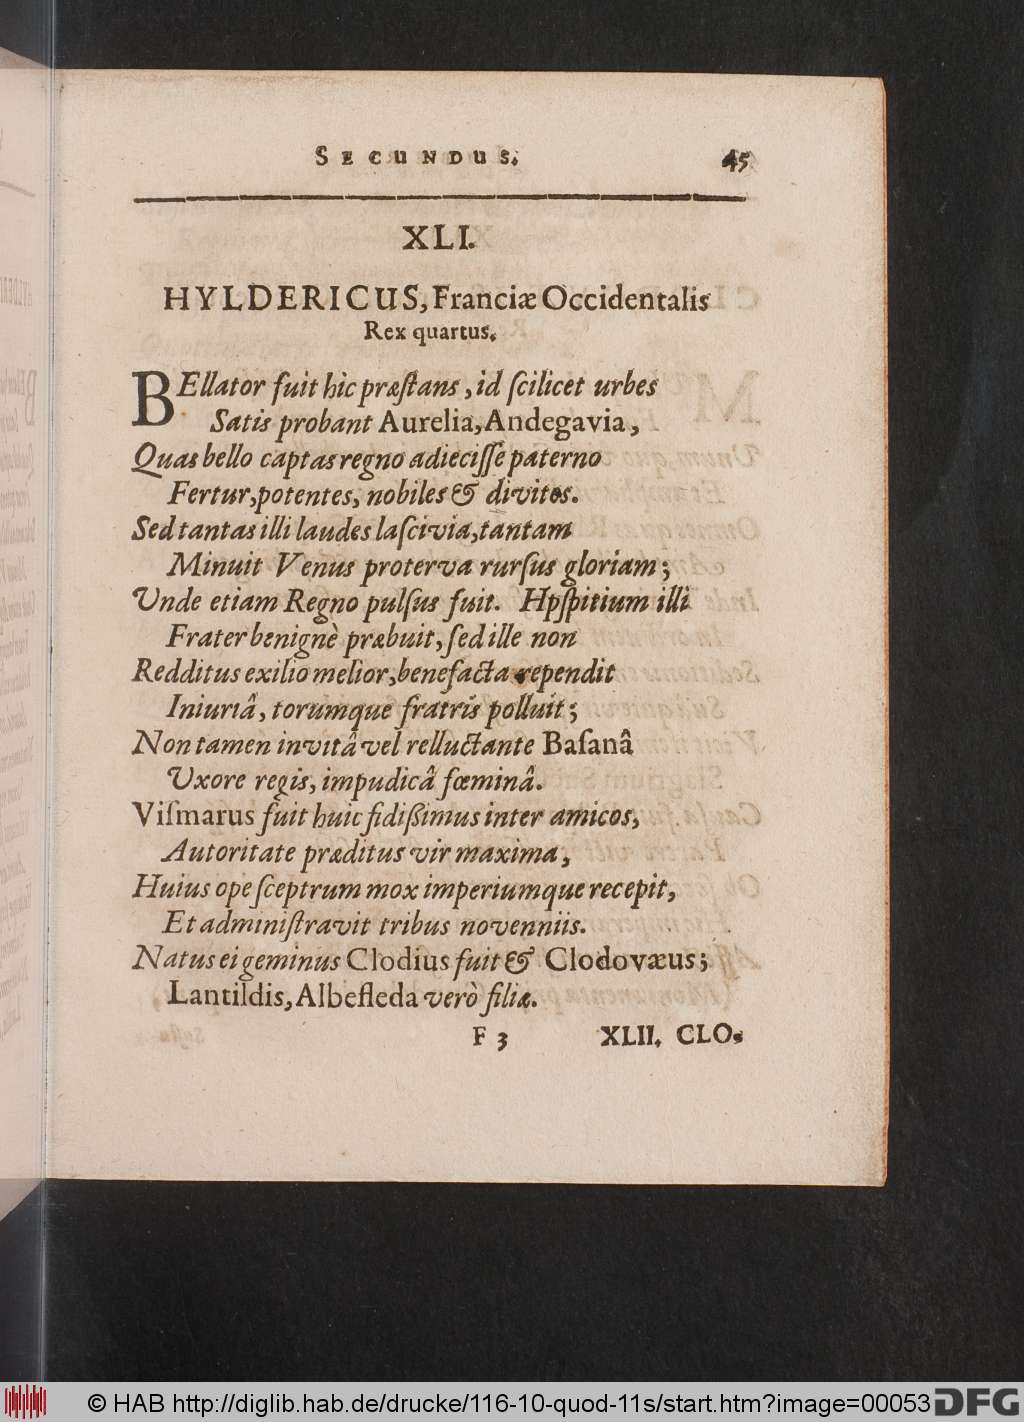 SECUNDUS. 45
XLI.
HYLDERICUS, Franciæ Occidentalis
Rex quartus.
BEllator fuit hic præſtans, id ſcilicet urbes
Satis probant Aurelia, Andegavia,
Quas bello captas regno adieciſſe paterno
Fertur, potentes, nobiles & divites.
Sed tantas illi laudes laſcivia, tantam
Minuit Venus proterva rurſus gloriam;
Unde etiam Regno pulſus fuit. Hpſpitium illi
Frater benignè præbuit, ſed ille non
Redditus exilio melior, benefacta rependit
Iniuriâ, torumque fratris polluit;
Non tamen invitâ vel relluctante Baſanâ
Uxore regis, impudicâ fœminâ.
Viſmarus fuit huic fidißimus inter amicos,
Autoritate præditus vir maxima,
Huius ope ſceptrum mox imperiumque recepit,
Et adminiſtravit tribus novenniis.
Natus ei geminus Clodius fuit & Clodovæus;
Lantildis, Albefleda verò filiæ.
F 3 XLII. CLO.
© HAB http://diglib.hab.de/drucke/116-10-quod-11s/start.htm?image=00053 DFG